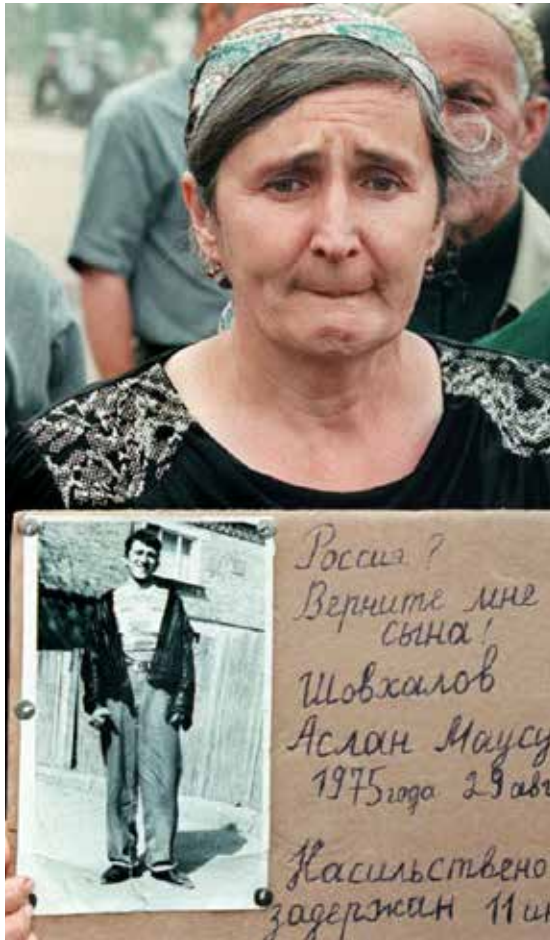 Россия?
Верните мне
сына!
Шовхалов
Аслан Маусу
1975 года 29 авг
Насильствено
задержан 11 ию